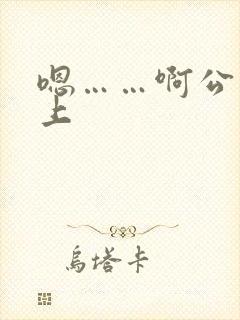 嗯……啊公
上
乌塔卡